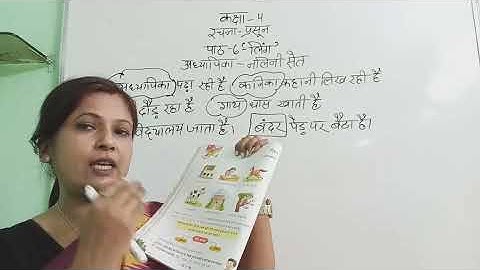 कक्षा - 4
रचना - प्रसून
पाठ - 6 'लिंग'
अध्यापिका - नलिनी सैत
अध्यापिका पढ़ा रही है कहानी लिख रही है
दौड़ रहा है गाय घास खाती है
विद्यालय जाता है। बंदर पेड़ पर बैठा है।